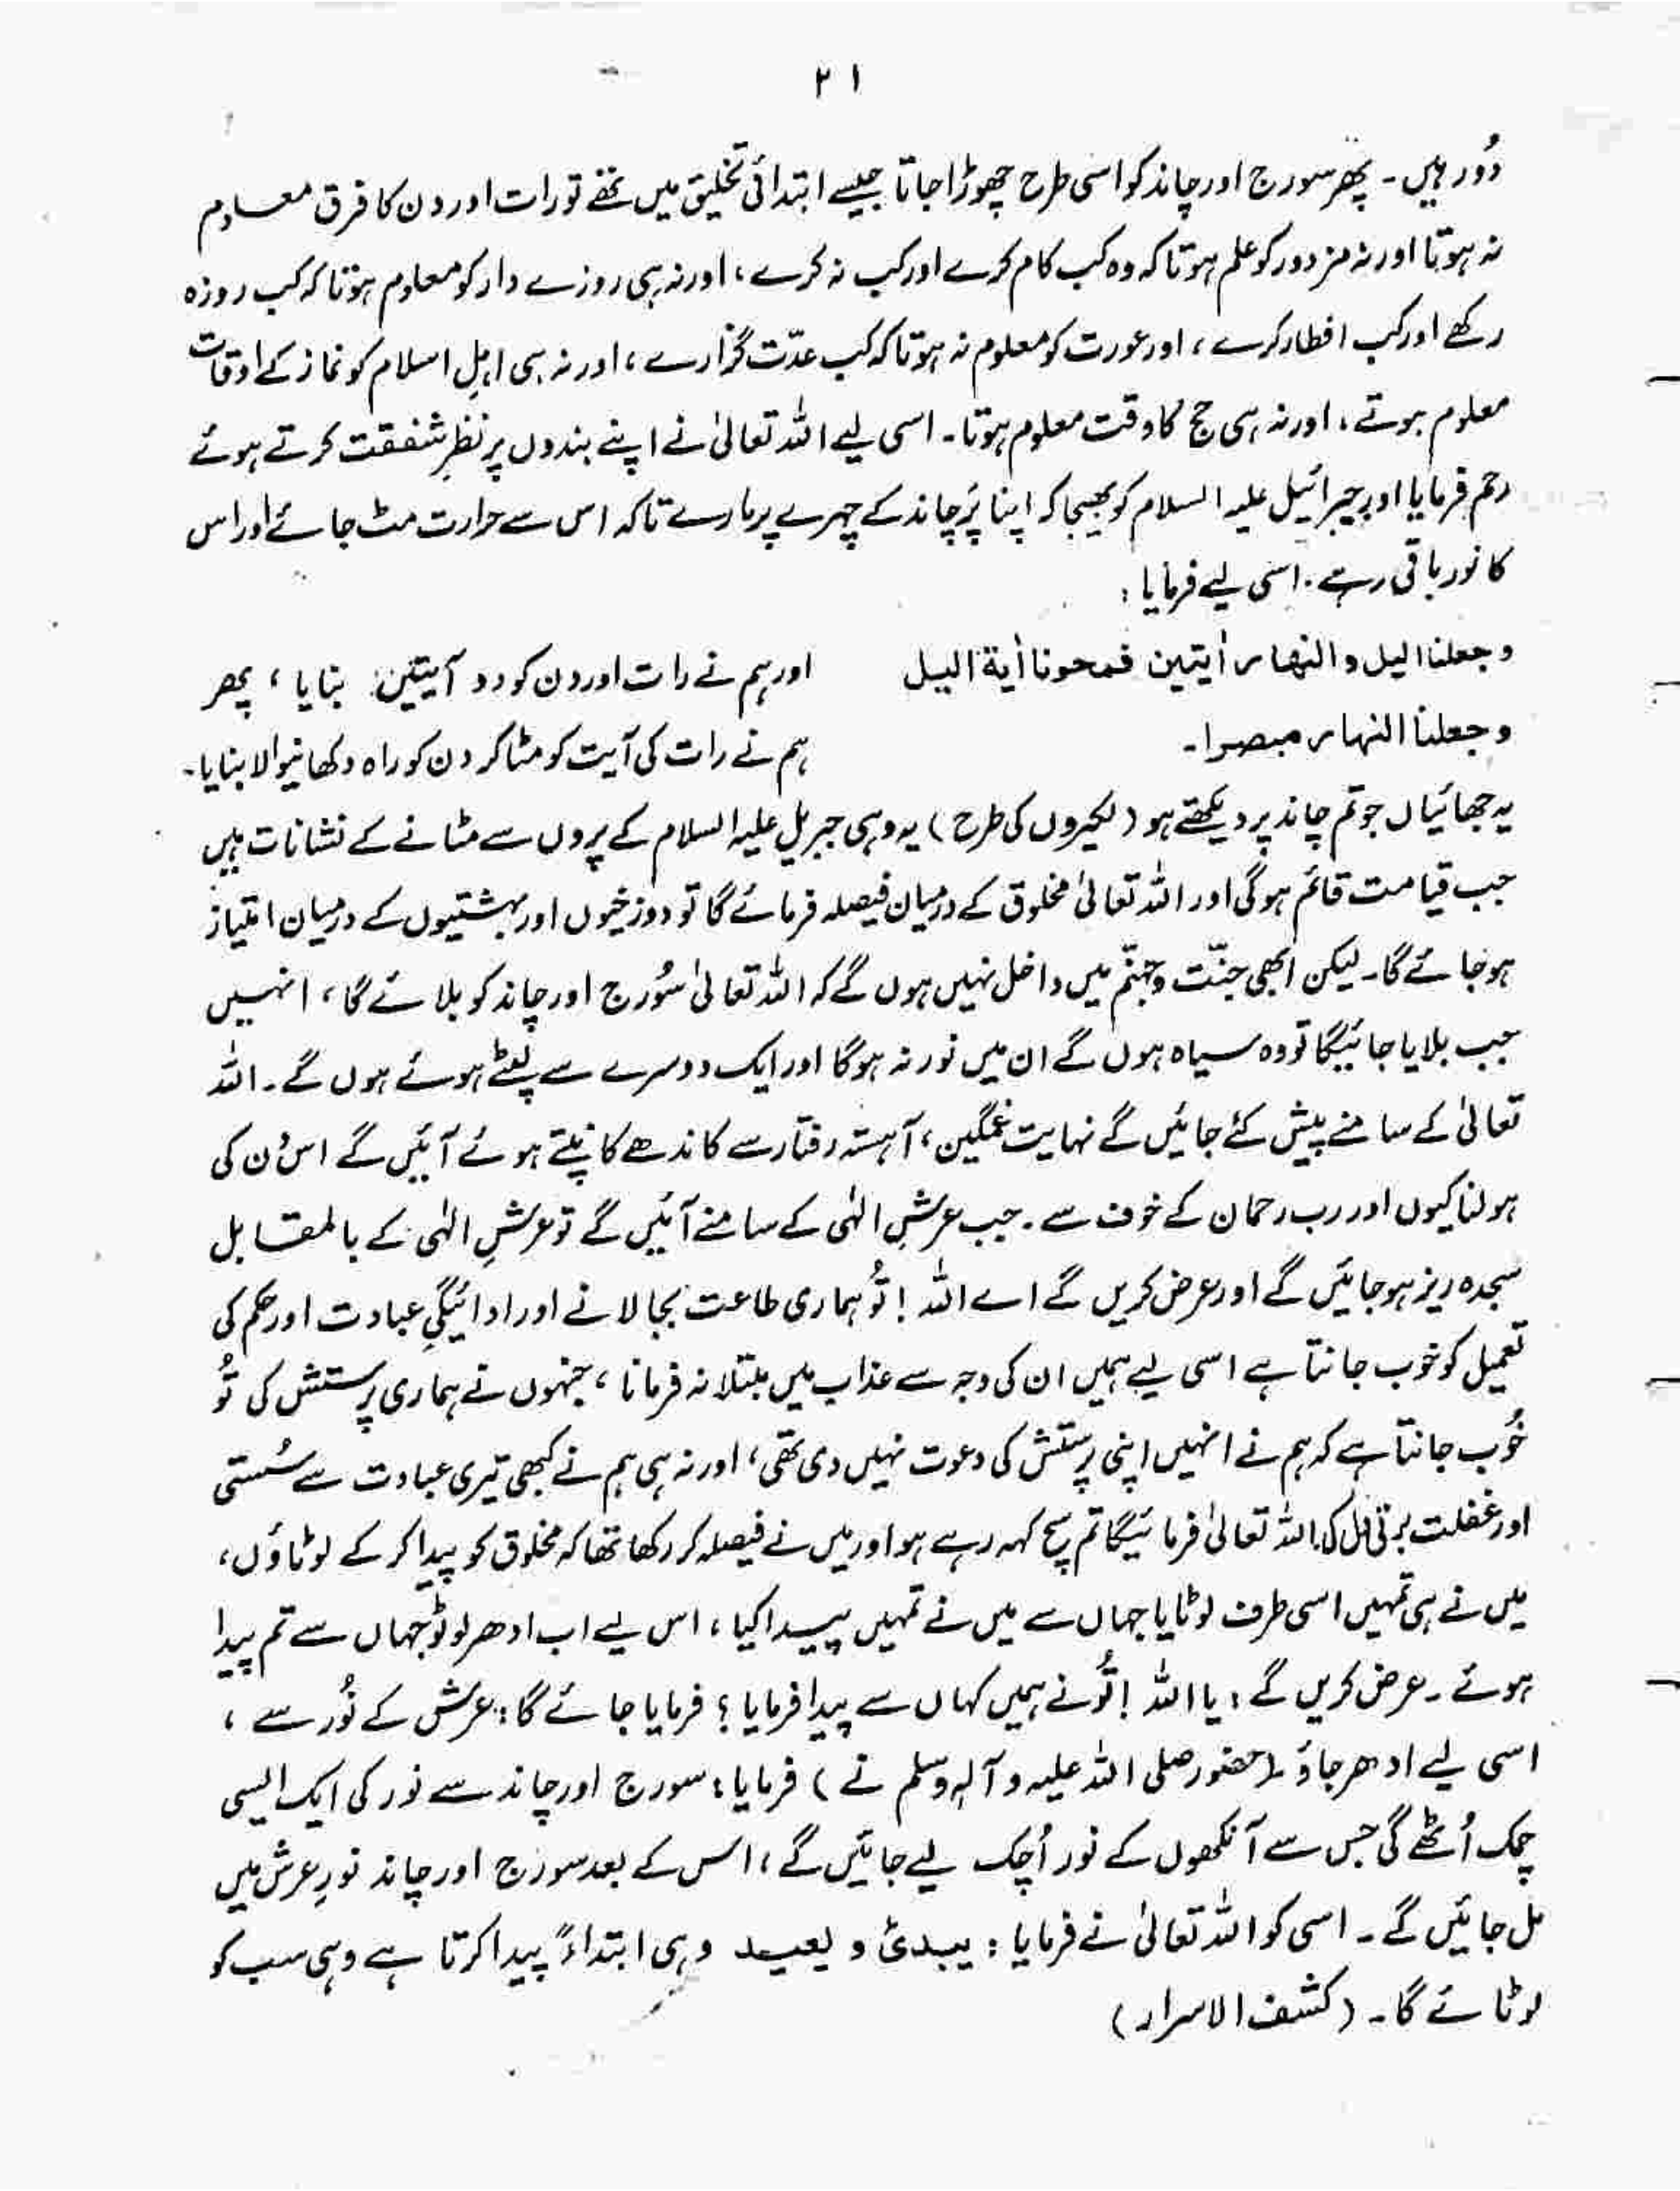 ۲۱
دُور ہیں۔ پھر سورج اور چاند کو اسی طرح چھوڑا جاتا جیسے ابتدائی تخلیق میں تھے تو رات اور دن کا فرق معلوم
نہ ہوتا اور نہ مزدور کو علم ہوتا کہ وہ کب کام کرے اور کب نہ کرے، اور نہ ہی روزے دار کو معلوم ہوتا کہ کب روزہ
رکھے اور کب افطار کرے، اور عورت کو معلوم نہ ہوتا کہ کب عدّت گزارے، اور نہ ہی اہلِ اسلام کو نماز کے اوقات
معلوم ہوتے، اور نہ ہی حج کا وقت معلوم ہوتا۔ اسی لیے اللہ تعالیٰ نے اپنے بندوں پر نظرِ شفقت کرتے ہوئے
رحم فرمایا اور جبرائیل علیہ السلام کو بھیجا کہ اپنا پَر چاند کے چہرے پر مارے تاکہ اس سے حرارت مٹ جائے اور اس
کا نور باقی رہے۔ اسی لیے فرمایا:
وجعلنا الیل والنھار اٰیتین فمحونا اٰیة الیل
وجعلنا النہار مبصرا۔
اور ہم نے رات اور دن کو دو آیتیں بنایا، پھر
ہم نے رات کی آیت کو مٹا کر دن کو راہ دکھانیوالا بنایا۔
یہ جھائیاں جو تم چاند پر دیکھتے ہو (لکیروں کی طرح) یہ وہی جبریل علیہ السلام کے پروں سے مٹانے کے نشانات ہیں
جب قیامت قائم ہوگی اور اللہ تعالیٰ مخلوق کے درمیان فیصلہ فرمائے گا تو دوزخیوں اور بہشتیوں کے درمیان امتیاز
ہو جائے گا۔ لیکن ابھی جنّت و جہنّم میں داخل نہیں ہوں گے کہ اللہ تعالیٰ سُورج اور چاند کو بلائے گا، انہیں
جب بلایا جائیگا تو وہ سیاہ ہوں گے ان میں نور نہ ہوگا اور ایک دوسرے سے لپٹے ہوئے ہوں گے۔ اللہ
تعالیٰ کے سامنے پیش کئے جائیں گے نہایت غمگین، آہستہ رفتار سے کاندھے کانپتے ہوئے آئیں گے اس دن کی
ہولناکیوں اور رب رحمان کے خوف سے۔ جب عرشِ الٰہی کے سامنے آئیں گے تو عرشِ الٰہی کے بالمقابل
سجدہ ریز ہو جائیں گے اور عرض کریں گے اے اللہ! تُو ہماری طاعت بجا لانے اور ادائیگیِ عبادت اور حکم کی
تعمیل کو خوب جانتا ہے اسی لیے ہمیں ان کی وجہ سے عذاب میں مبتلا نہ فرمانا، جنہوں نے ہماری پرستش کی تُو
خُوب جانتا ہے کہ ہم نے انہیں اپنی پرستش کی دعوت نہیں دی تھی، اور نہ ہی ہم نے کبھی تیری عبادت سے سُستی
اور غفلت برتی اللہ تعالیٰ فرمائیگا تم سچ کہہ رہے ہو اور میں نے فیصلہ کر رکھا تھا کہ مخلوق کو پیدا کر کے لوٹاؤں،
میں نے ہی تمہیں اسی طرف لوٹایا جہاں سے میں نے تمہیں پیدا کیا، اس لیے اب ادھر لوٹو جہاں سے تم پیدا
ہوئے۔ عرض کریں گے: یا اللہ! تُو نے ہمیں کہاں سے پیدا فرمایا؟ فرمایا جائے گا: عرش کے نُور سے،
اسی لیے ادھر جاؤ۔ (حضور صلی اللہ علیہ وآلہٖ وسلم نے) فرمایا: سورج اور چاند سے نور کی ایک ایسی
چمک اُٹھے گی جس سے آنکھوں کے نور اُچک لیے جائیں گے، اس کے بعد سورج اور چاند نورِ عرش میں
مل جائیں گے۔ اسی کو اللہ تعالیٰ نے فرمایا: یبدئ و یعید وہی ابتداءً پیدا کرتا ہے وہی سب کو
لوٹائے گا۔ (کشف الاسرار)